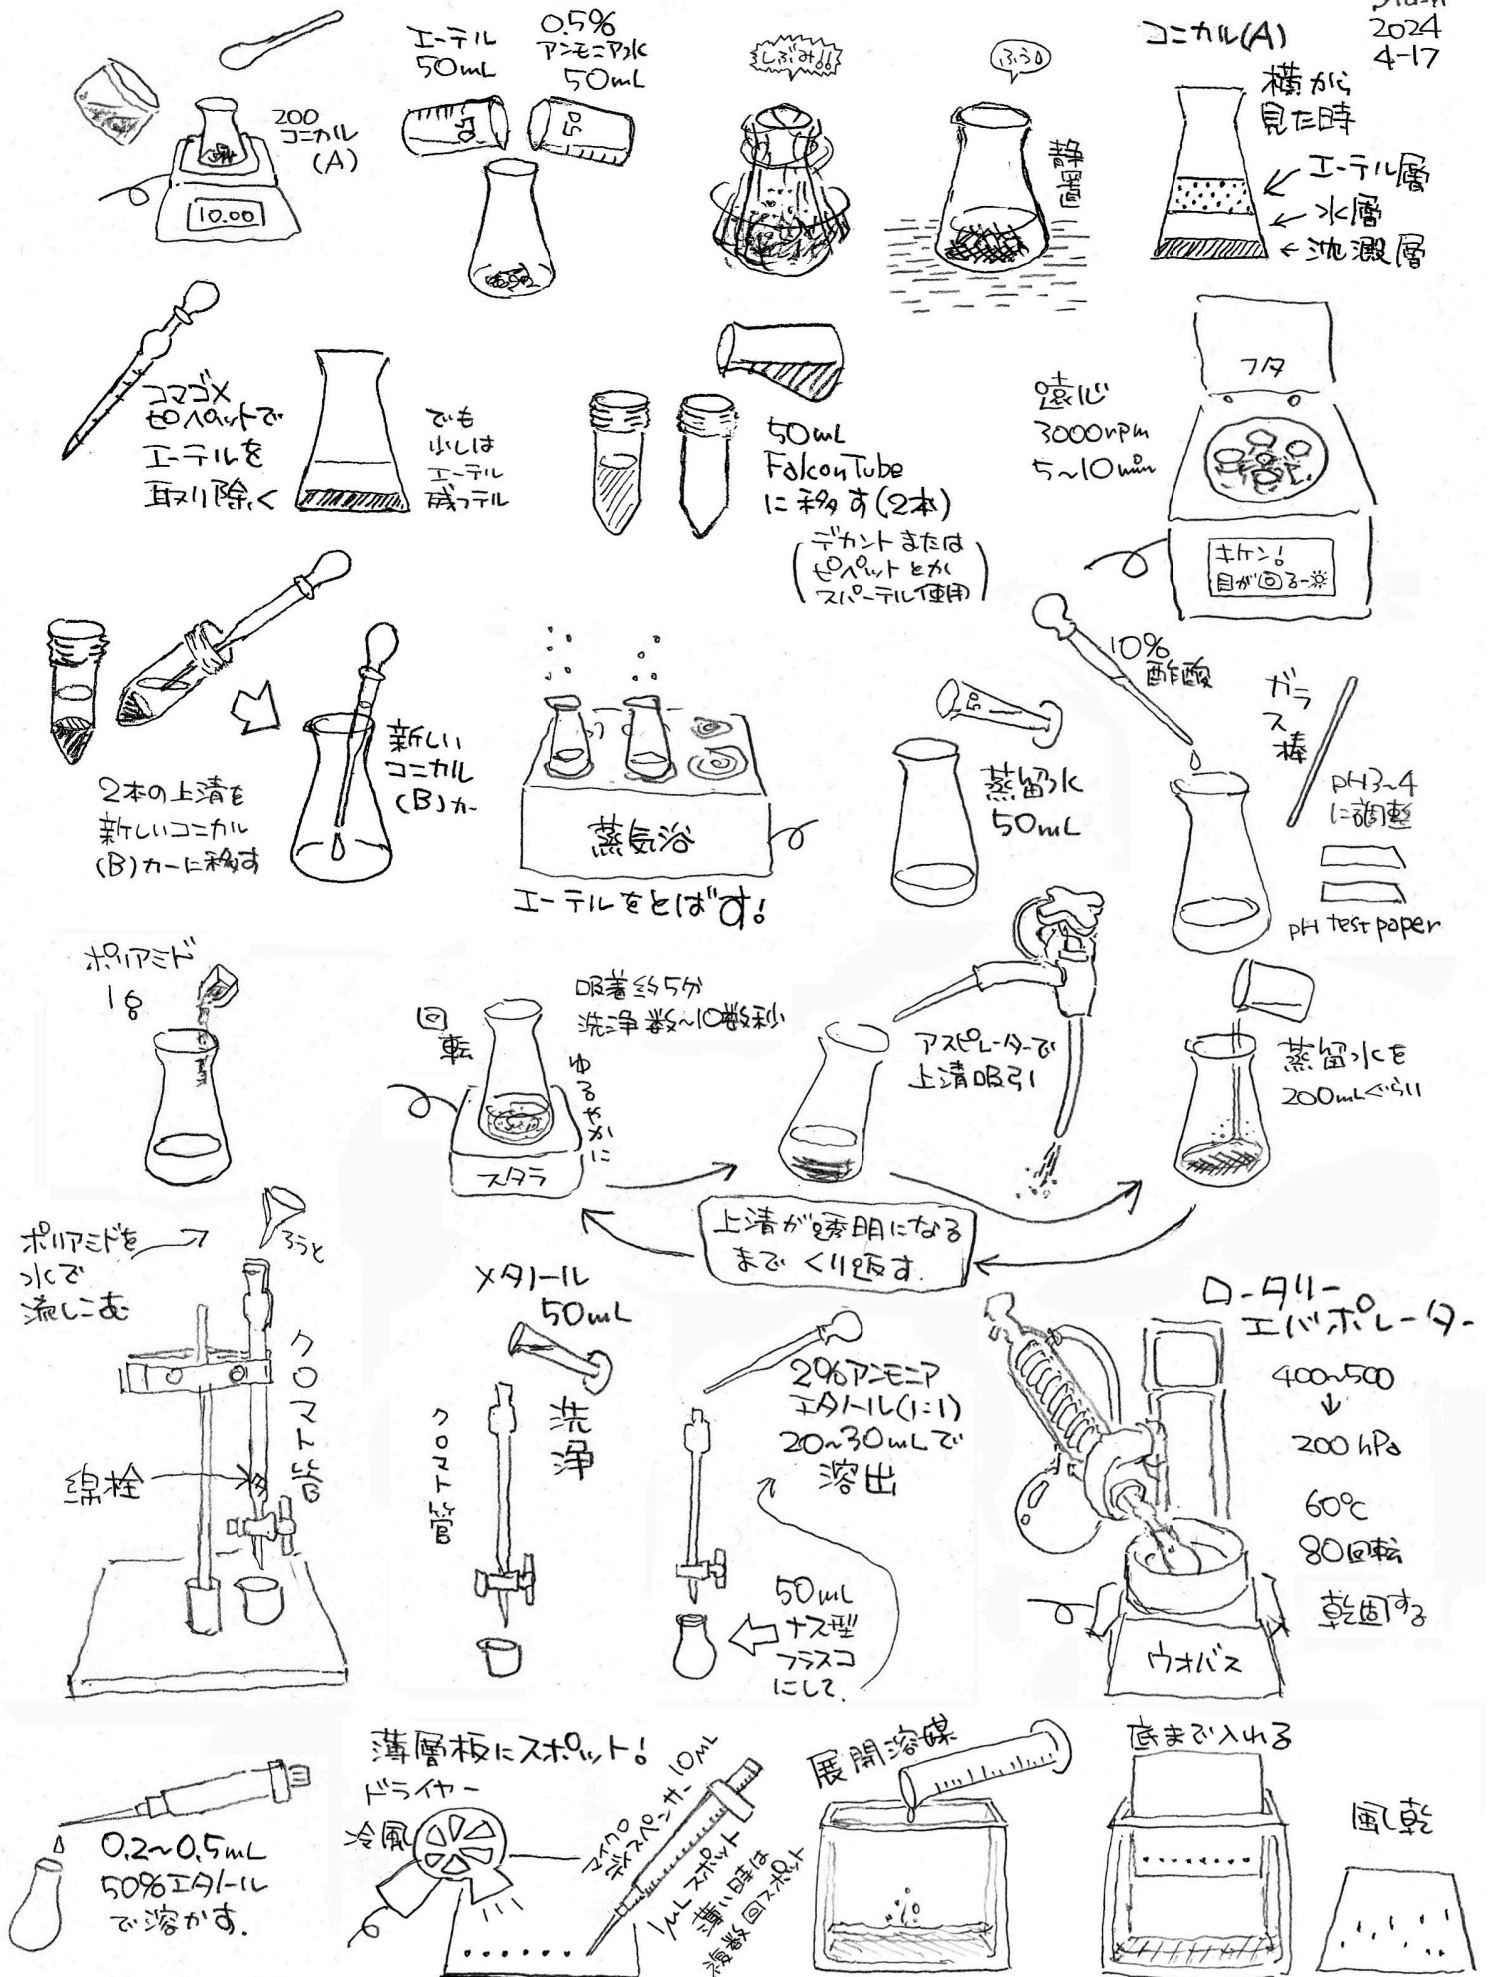 2024
4-17
10.00
200
コニカル
(A)
エーテル
50mL
0.5%
アンモニア水
50mL
50
50
しぶみ!!
ふぅ
静置
コニカル(A)
横から
見た時
エーテル層
水層
沈澱層
コマゴメ
ピペットで
エーテルを
取り除く
でも
少しは
エーテル
残ってル
50mL
Falcon Tube
に移す(2本)
デカントまたは
ピペットとか
スパーテル使用
遠心
3000rpm
5~10min
フタ
キケン!
目が回る~
2本の上清を
新しいコニカル
(B)カーに移す
新しい
コニカル
(B)カー
蒸気浴
エーテルをとばす!
50
蒸留水
50mL
10%
酢酸
ガラス棒
pH3~4
に調整
pH test paper
ポリアミド
1g
回転
スタラ
吸着約5分
洗浄数~10数秒
ゆるやかに
アスピレーターで
上清吸引
蒸留水を
200mLぐらい
上清が透明になる
まで くり返す.
ポリアミドを
水で
流しこむ
ろうと
クロマト管
綿栓
メタノール
50mL
洗浄
クロマト管
2%アンモニア
エタノール(1:1)
20~30mLで
溶出
50mL
ナス型
フラスコ
にして.
ロータリー
エバポレーター
400~500
↓
200hPa
60℃
80回転
乾固する
ウオバス
0.2~0.5mL
50%エタノール
で溶かす.
薄層板にスポット!
ドライヤー
冷風
マイクロ
ディスペンサー 10μL
1μLスポット
薄い時は
複数回スポット
展開溶媒
底まで入れる
風乾